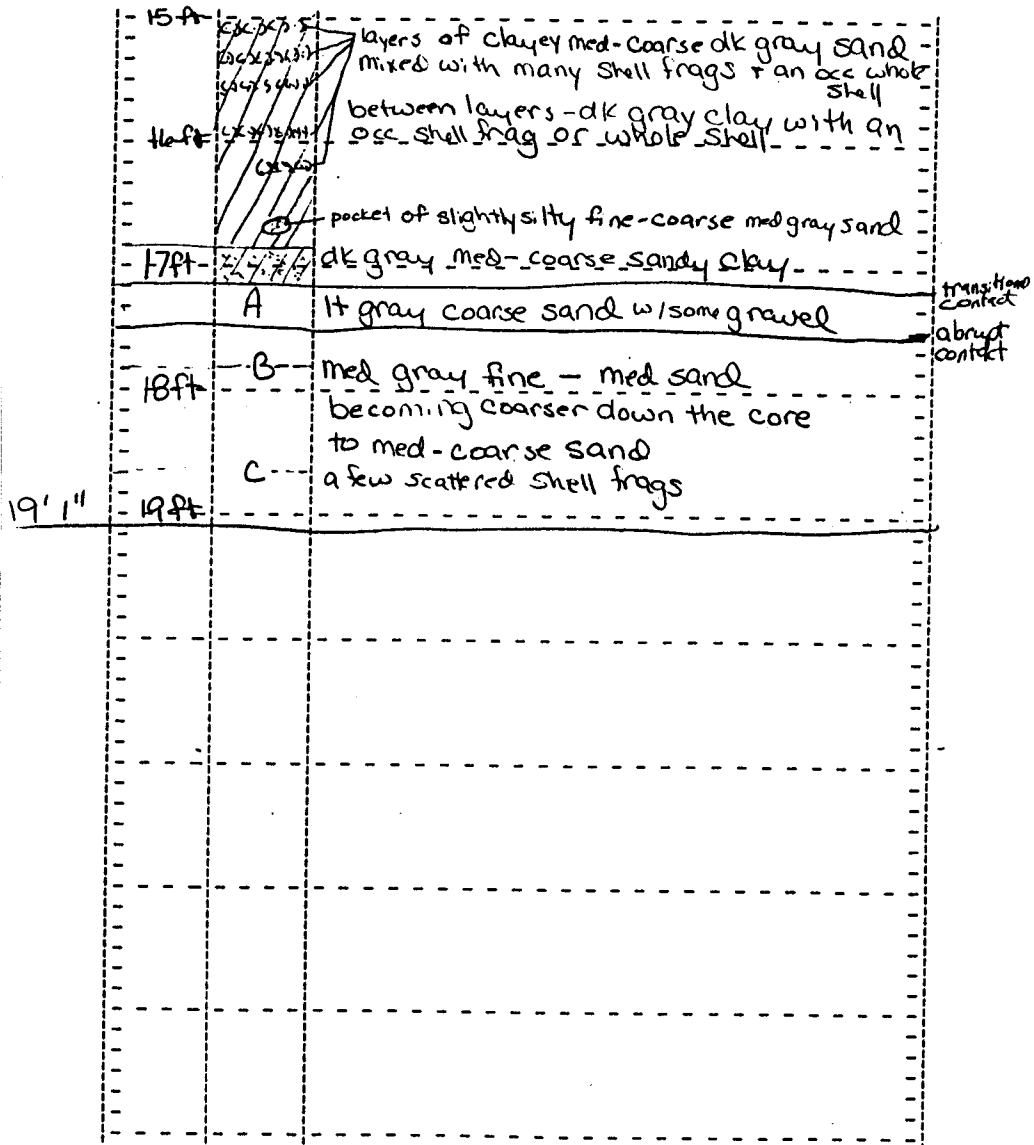 15 ft
layers of clayey med-coarse dk gray sand
mixed with many shell frags + an occ whole
shell
between layers - dk gray clay with an
16 ft
occ shell frag or whole shell
pocket of slightly silty fine-coarse med gray sand
17 ft
dk gray med-coarse sandy clay
transitional
contact
A
lt gray coarse sand w/some gravel
abrupt
contact
B
med gray fine - med sand
18 ft
becoming coarser down the core
to med-coarse sand
C
a few scattered shell frags
19' 1"
19 ft